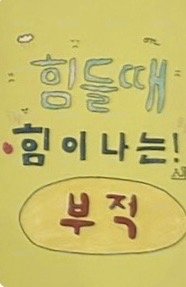 힘들때
힘이나는!
부적